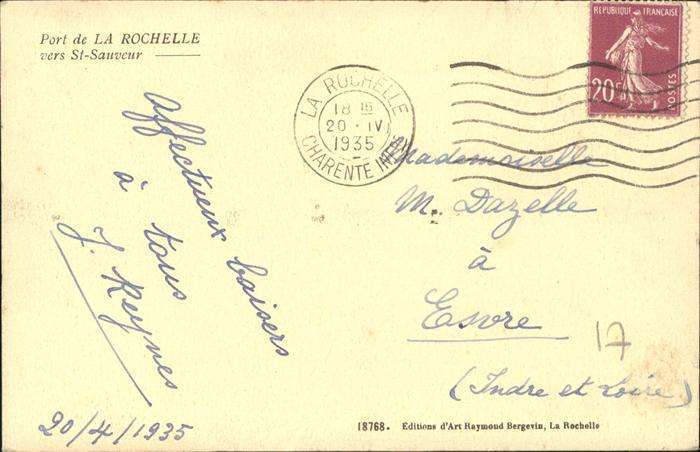 Port de LA ROCHELLE
vers St-Sauveur
RÉPUBLIQUE FRANÇAISE
20c
POSTES
LA ROCHELLE
18 H
20 · IV
1935
CHARENTE INFRE
Affectueux baisers
à tous
J. Reynes
20/4/1935
Mademoiselle
M. Dazelle
à
Esvre
(Indre et Loire)
17
18768. Editions d'Art Raymond Bergevin, La Rochelle